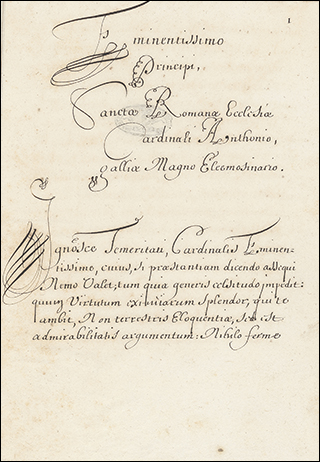 1
Eminentissimo
Principi,
Sanctæ Romanæ Ecclesiæ
Cardinali Anthonio,
galliæ Magno Eleemosinario.
Ignosce Temeritati, Cardinalis Eminen-
tissime, cuius, si præstantiam dicendo assequi
Nemo Valet, tum quia generis celsitudo impedit:
quum Virtutum eximiarum splendor, qui te
ambit, Non terrestris Eloquentiæ, sed est
admirabilitatis argumentum: Nihilo ferme